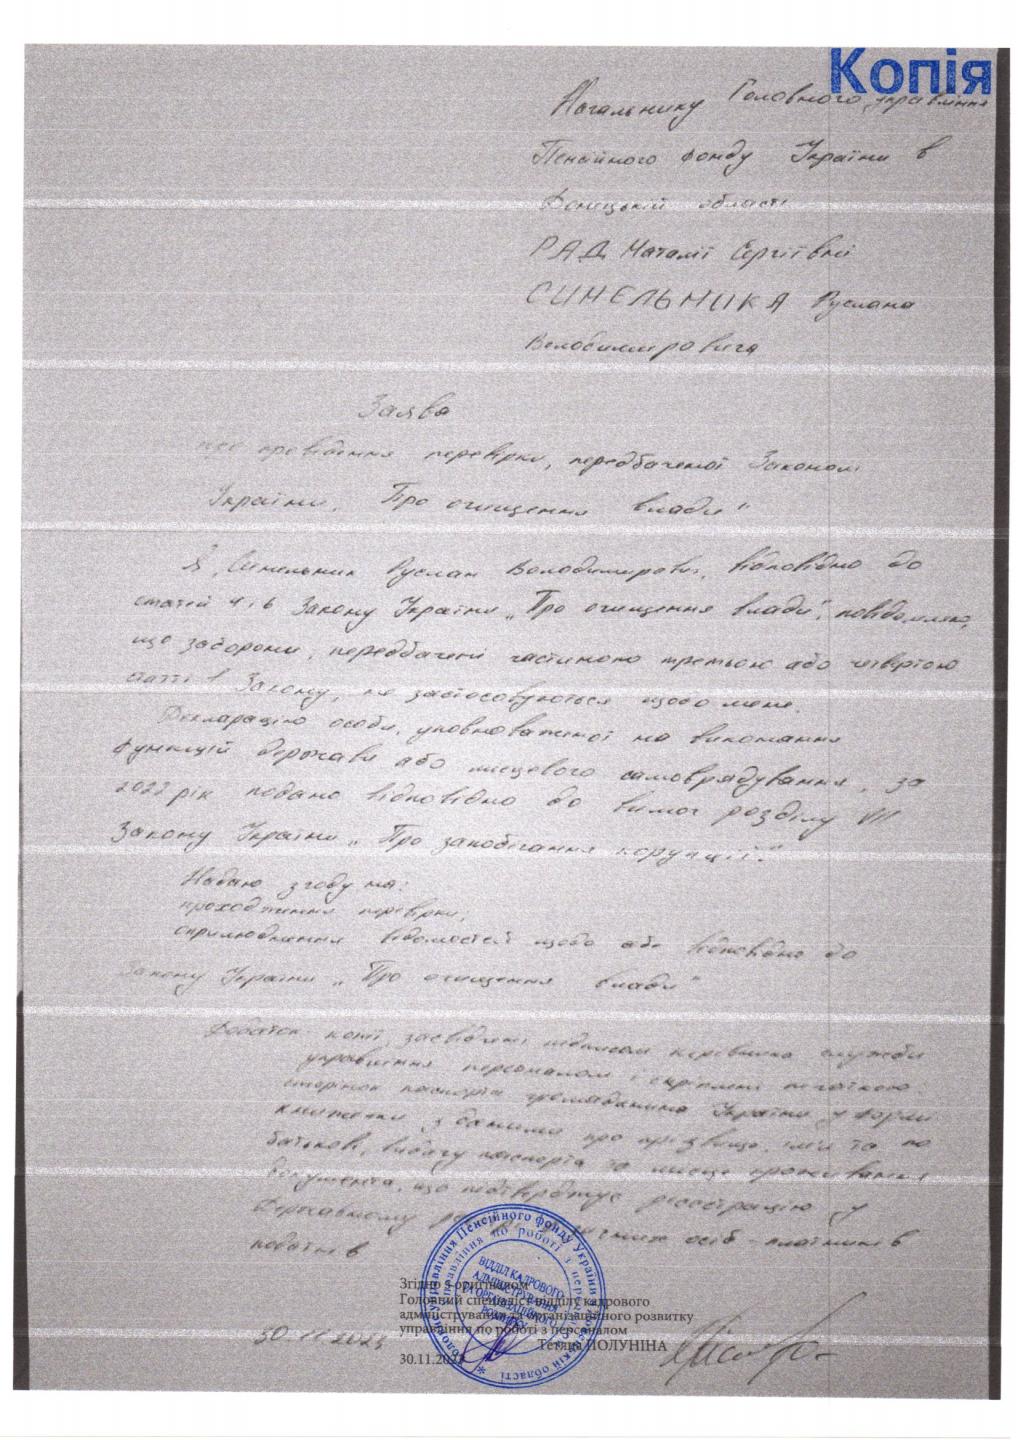 Копія
Начальнику Головного управління
Пенсійного фонду України в
Донецькій області
РАД Наталії Сергіївні
СИНЕЛЬНИКА Руслана
Володимировича
Заява
про проведення перевірки, передбаченої Законом
України „Про очищення влади"
Я, Синельник Руслан Володимирович, відповідно до
статей 4 і 6 Закону України „Про очищення влади", повідомляю,
що заборони, передбачені частиною третьою або четвертою
статті 1 Закону, не застосовуються щодо мене.
Декларацію особи, уповноваженої на виконання
функцій держави або місцевого самоврядування, за
2022 рік подано відповідно до вимог розділу VII
Закону України „Про запобігання корупції".
Надаю згоду на:
проходження перевірки,
оприлюднення відомостей щодо або відповідно до
Закону України „Про очищення влади"
Додаток: копії, засвідчені підписом керівника служби
управління персоналом і скріплені печаткою:
сторінок паспорта громадянина України у формі
книжечки з даними про прізвище, ім'я та по
батькові, видачу паспорта та місце проживання
документа, що підтверджує реєстрацію у
Державному реєстрі фізичних осіб - платників
податків
Згідно з оригіналом
Головний спеціаліст відділу кадрового
адміністрування та організаційного розвитку
управління по роботі з персоналом
Тетяна ПОЛУНІНА
30.11.2023
30.11.2023
Головне управління Пенсійного фонду України в Донецькій області
управління по роботі з персоналом
ВІДДІЛ КАДРОВОГО
АДМІНІСТРУВАННЯ
ТА ОРГАНІЗАЦІЙНОГО
РОЗВИТКУ